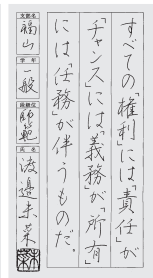 すべての「権利」には「責任」が
「チャンス」には「義務」が「所有」
には「任務」が伴うものだ。
支部名
福山
学年
一般
段級位
師範
氏名
渡邉未菜